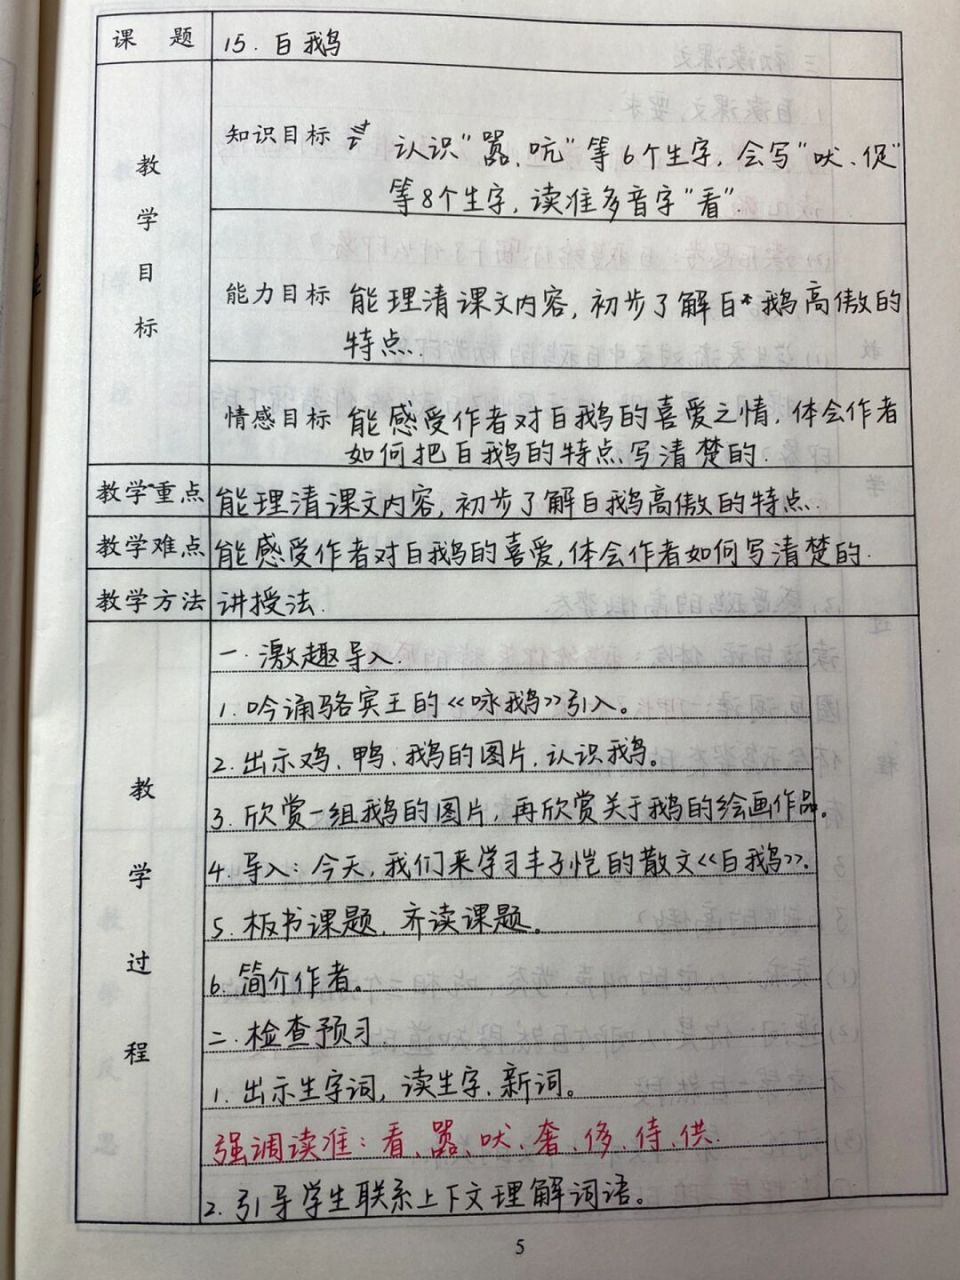 课 题 15. 白鹅
教学目标
知识目标 认识“嚣、吭”等6个生字, 会写“吠、促”
等8个生字, 读准多音字“看”.
能力目标 能理清课文内容, 初步了解白鹅高傲的
特点.
情感目标 能感受作者对白鹅的喜爱之情, 体会作者
如何把白鹅的特点写清楚的.
教学重点 能理清课文内容, 初步了解白鹅高傲的特点.
教学难点 能感受作者对白鹅的喜爱, 体会作者如何写清楚的.
教学方法 讲授法.
教学过程
一. 激趣导入.
1. 吟诵骆宾王的《咏鹅》引入。
2. 出示鸡、鸭、鹅的图片, 认识鹅。
3. 欣赏一组鹅的图片, 再欣赏关于鹅的绘画作品。
4. 导入: 今天, 我们来学习丰子恺的散文《白鹅》.
5. 板书课题, 齐读课题。
6. 简介作者。
二. 检查预习
1. 出示生字词, 读生字、新词。
强调读准: 看、嚣、吠、奢、侈、侍、供.
2. 引导学生联系上下文理解词语。
5